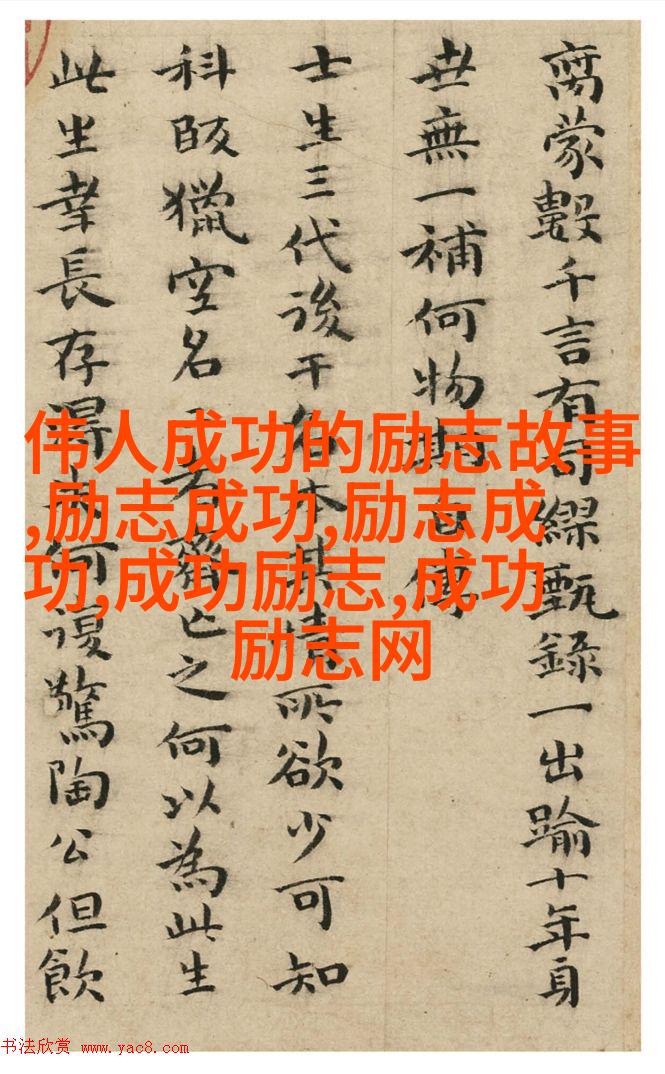 蒙數千言有司繆甄錄一出踰十年身
世無一補何物傳
士生三代後干名本其情所欲少可知
科獵空名者亡之何以為此生
此生幸長存得何復驚陶公但飲
伟人成功的励志故事
,励志成功,励志成
功,成功励志,成功
励志网
书法欣赏 www.yac8.com